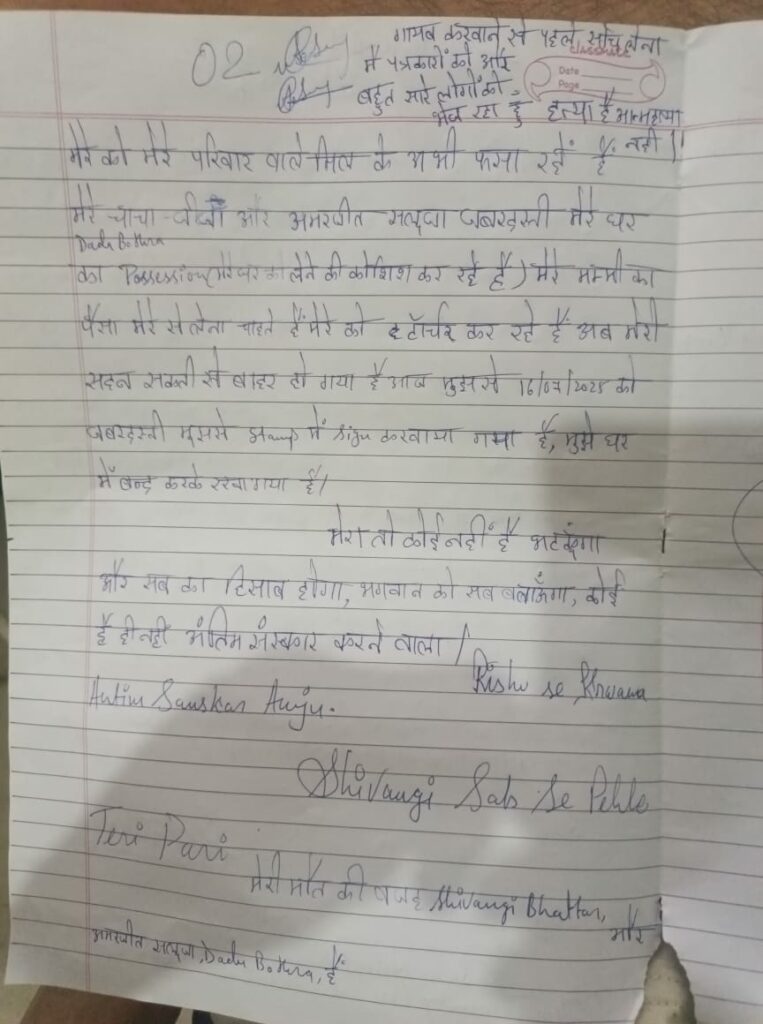 02
गायब करवाने से पहले सोच लेना
मैं पत्रकारों को और
बहुत सारे लोगों को
भेज रहा हूँ हत्या है आत्महत्या
नहीं !!
Classmate
Date
Page
मेरे को मेरे परिवार वाले मिल के अभी फसा रहें हैं
मेरे चाचा-जीजी और अमरजीत सलूजा जबरदस्ती मेरे घर
Dadu Bothra
का Possession (मेरे घर का लेने की कोशिश कर रहे हैं) मेरे मम्मी का
पैसा मेरे से लेना चाहते हैं मेरे को टॉर्चर कर रहे हैं अब मेरी
सहन सक्ती से बाहर हो गया है आज मुझसे 16/07/2025 को
जबरदस्ती मुझसे stamp में sign करवाया गया है, मुझे घर
में बन्द करके रखा गया है/
मेरा तो कोई नहीं है भटकूंगा
और सब का हिसाब होगा, भगवान को सब बताऊँगा, कोई
है ही नहीं अंतिम संस्कार करने वाला /
Rishu se
Antim Sanskar Anju.
Shivangi Sab Se Pehle
Teri Pari
मेरी मौत की वजह Shivangi Bhattar,
और
अमरजीत सलूजा, Dadu Bothra, हैं